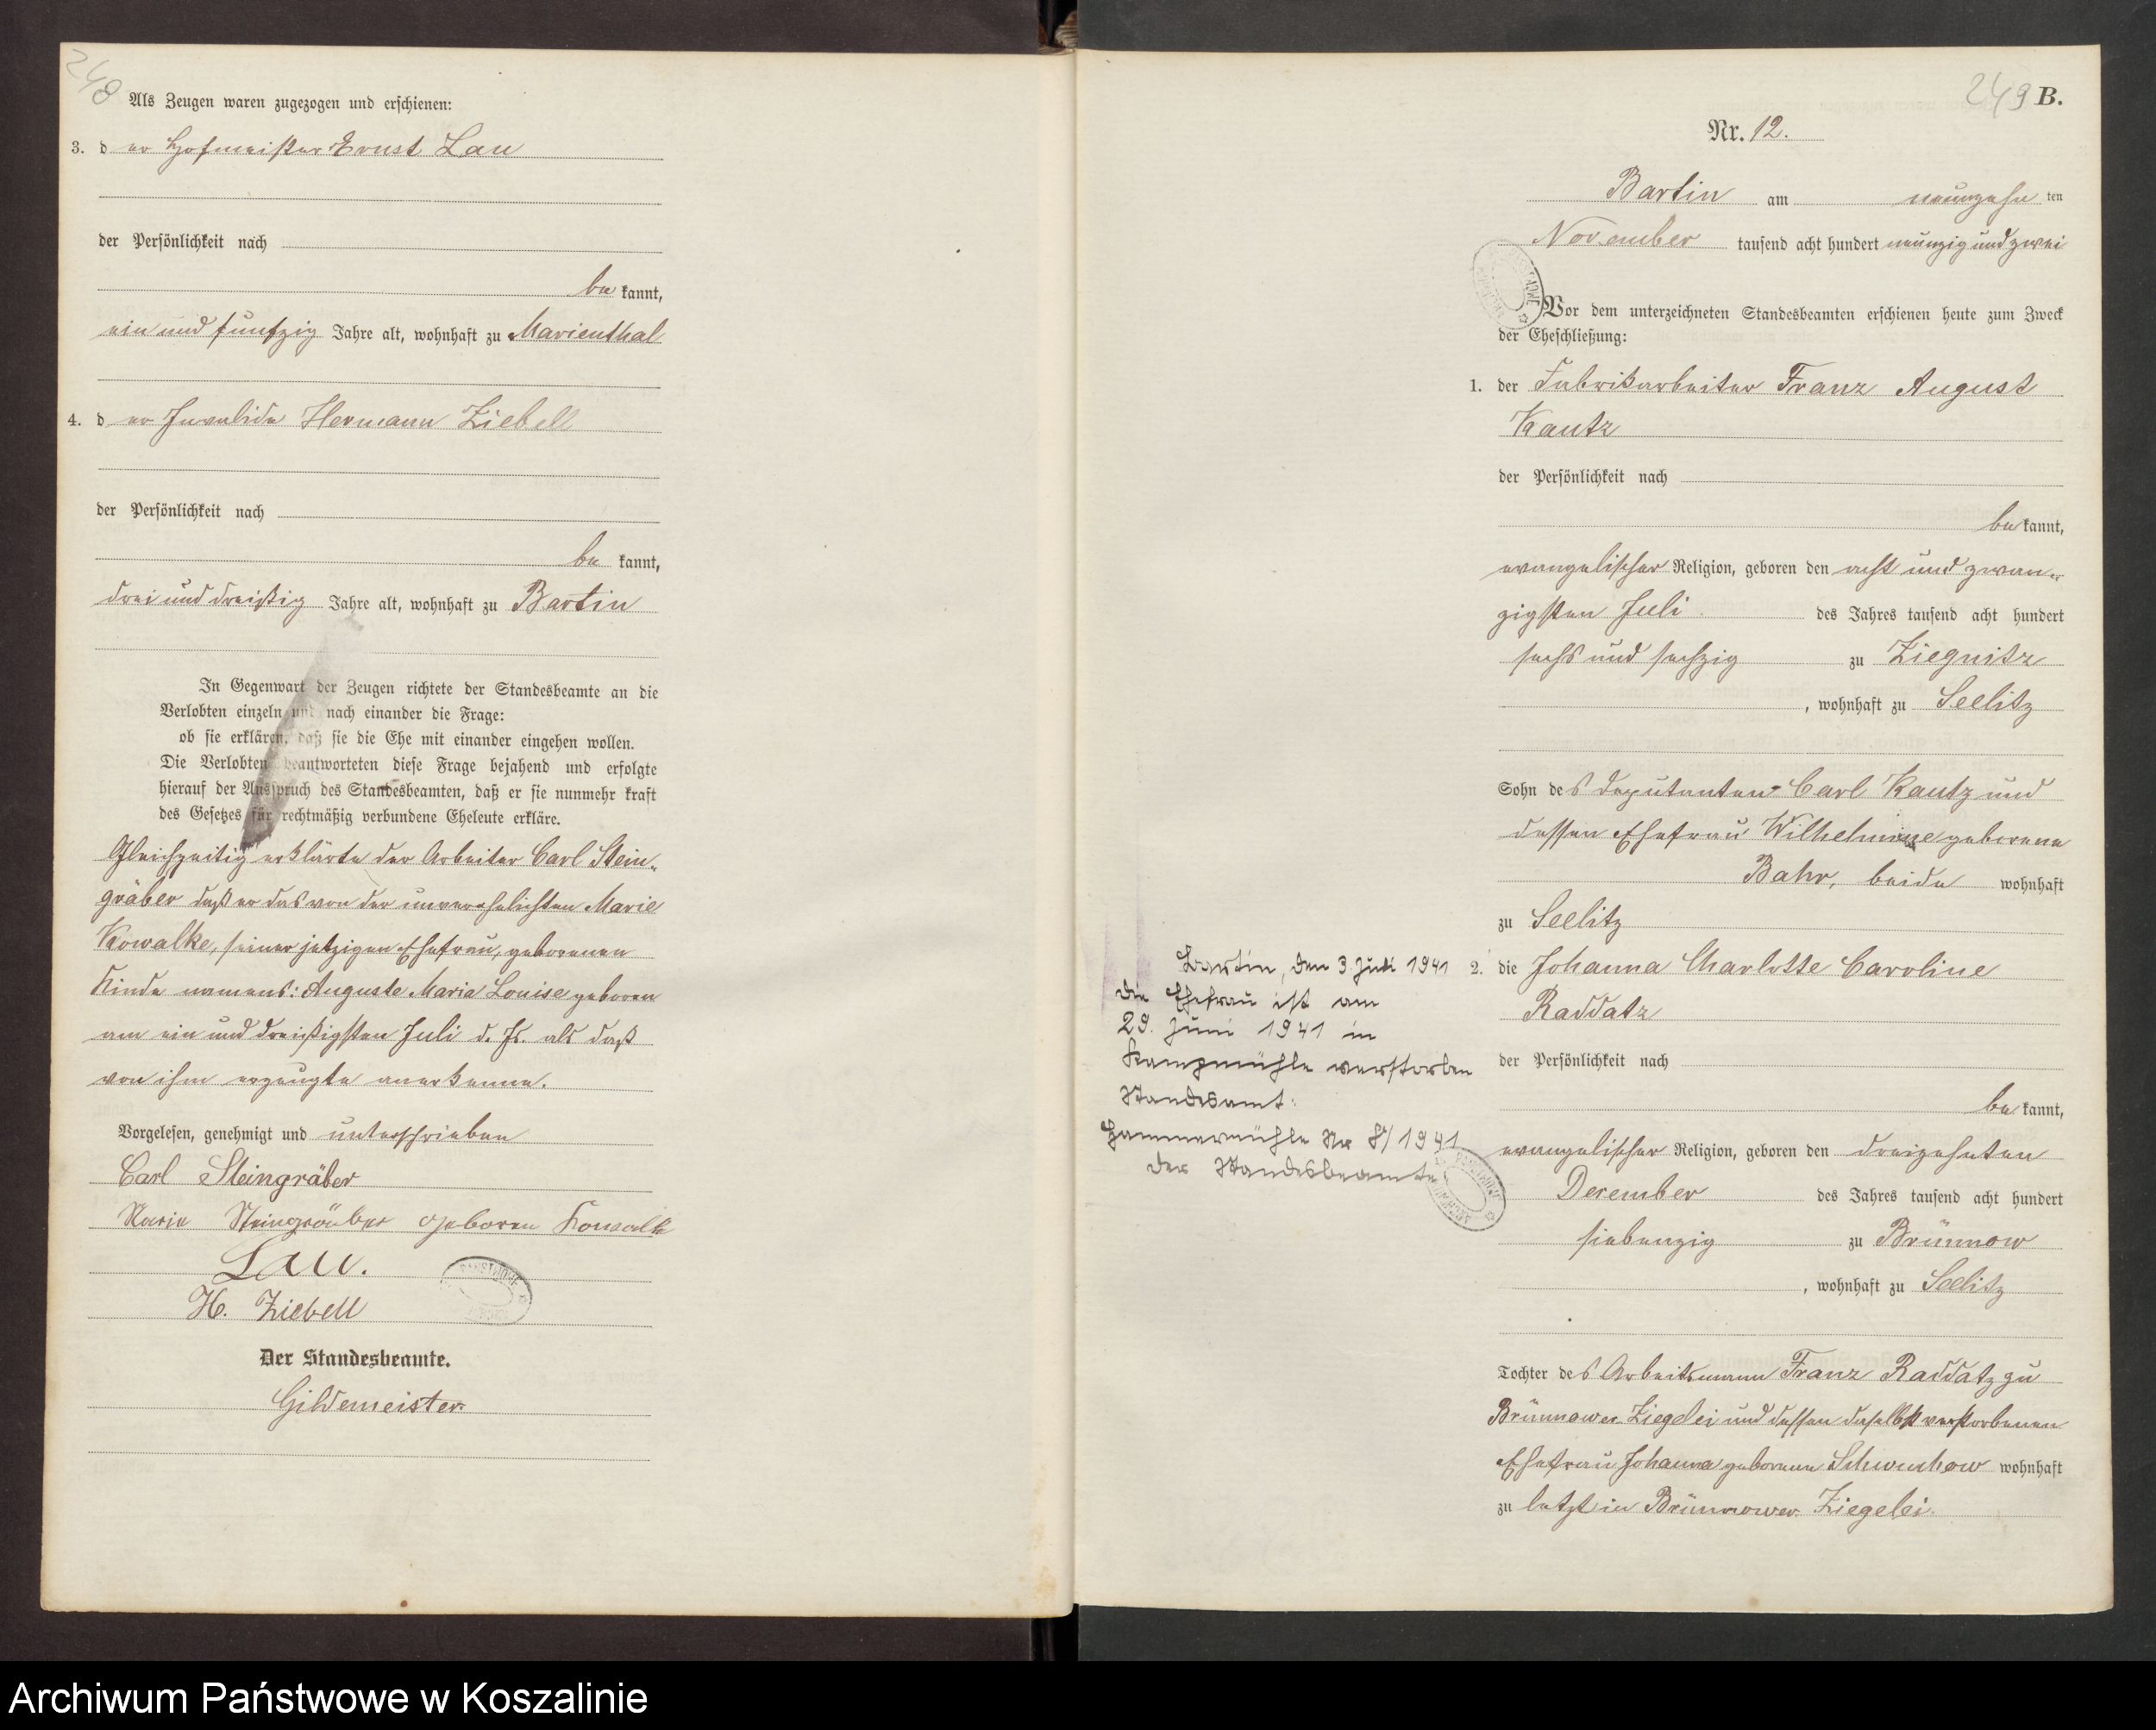 248
Als Zeugen waren zugezogen und erschienen:
3. d er Hofmeister Ernst Lau
der Persönlichkeit nach
be kannt,
ein und fünfzig Jahre alt, wohnhaft zu Marienthal
4. d er Invalide Hermann Ziebell
der Persönlichkeit nach
be kannt,
drei und dreißig Jahre alt, wohnhaft zu Bartin
In Gegenwart der Zeugen richtete der Standesbeamte an die
Verlobten einzeln und nach einander die Frage:
ob sie erklären, daß sie die Ehe mit einander eingehen wollen.
Die Verlobten beantworteten diese Frage bejahend und erfolgte
hierauf der Ausspruch des Standesbeamten, daß er sie nunmehr kraft
des Gesetzes für rechtmäßig verbundene Eheleute erkläre.
Gleichzeitig erklärte der Arbeiter Carl Stein-
gräber daß er das von der unverehelichten Marie
Kowalke, seiner jetzigen Ehefrau, geborenen
Kinde namens: Auguste Maria Louise geboren
am ein und dreißigsten Juli d. Js. als daß
von ihm erzeugte anerkenne.
Vorgelesen, genehmigt und unterschrieben
Carl Steingräber
Marie Steingräber geboren Kowalk
Lau.
H. Ziebell
Der Standesbeamte.
Gildemeister
249 B.
Nr. 12.
Bartin am neunzehn ten
November tausend acht hundert neunzig und zwei
Vor dem unterzeichneten Standesbeamten erschienen heute zum Zweck
der Eheschließung:
1. der Fabrikarbeiter Franz August
Kautz
der Persönlichkeit nach
be kannt,
evangelischer Religion, geboren den acht und zwan-
zigsten Juli des Jahres tausend acht hundert
sechs und sechzig zu Ziegnitz
, wohnhaft zu Seelitz
Sohn des Deputanten Carl Kautz und
dessen Ehefrau Wilhelmine geborene
Bahr, beide wohnhaft
zu Seelitz
2. die Johanna Charlotte Caroline
Raddatz
der Persönlichkeit nach
be kannt,
evangelischer Religion, geboren den dreizehnten
December des Jahres tausend acht hundert
siebenzig zu Brünnow
, wohnhaft zu Seelitz
Tochter des Arbeitsmann Franz Raddatz zu
Brünnower Ziegelei und dessen daselbst verstorbenen
Ehefrau Johanna geborene Schwuchow wohnhaft
zu letzt in Brünnower Ziegelei.
Bartin, den 3. Juli 1941
Die Ehefrau ist am
29. Juni 1941 in
Kampmühle verstorben
Standesamt:
Hammermühle Nr 8/1941
Der Standesbeamte
Archiwum Państwowe w Koszalinie